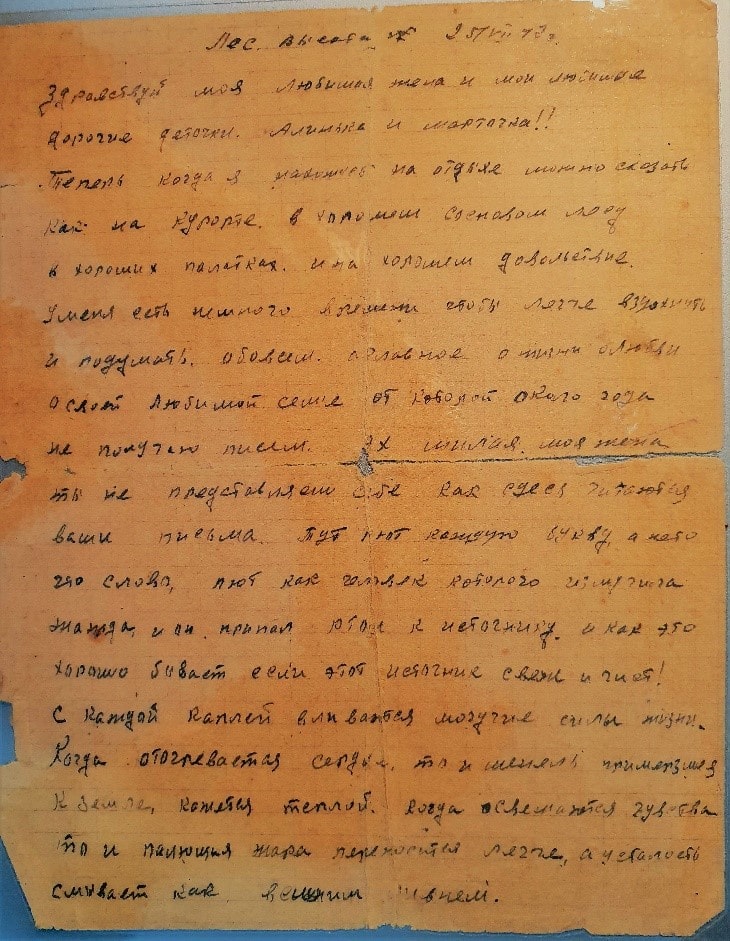 Лес. высота 25/VII 43г.
Здравствуй моя любимая жена и мои любимые
дорогие деточки. Алинька и марточка!!
Теперь когда я нахожусь на отдыхе можно сказать
как на курорте. в хорошем сосновом лесу
в хороших палатках. и на хорошем довольствие.
Уменя есть немного времени чтобы легче вздохнуть
и подумать. обовсем. аглавное о жизни олюбви
о своей любимой семье от которой около года
не получаю писем. Эх милая моя жена
ты не представляеш себе как сдесь читаются
ваши письма. Тут пют каждую букву, а нето
что слово, пют как человек которого измучила
жажда, и он припал ртом к источнику. и как это
хорошо бывает если этот источник свеж и чист!
С каждой каплей вливаются могучие силы жизни.
Когда отогревается сердце, то и шинель примерзшая
к земле, кажется теплой. Когда освежаются чувства
то и палющая жара переносится легче, а усталость
смывает как вешним ливнем.